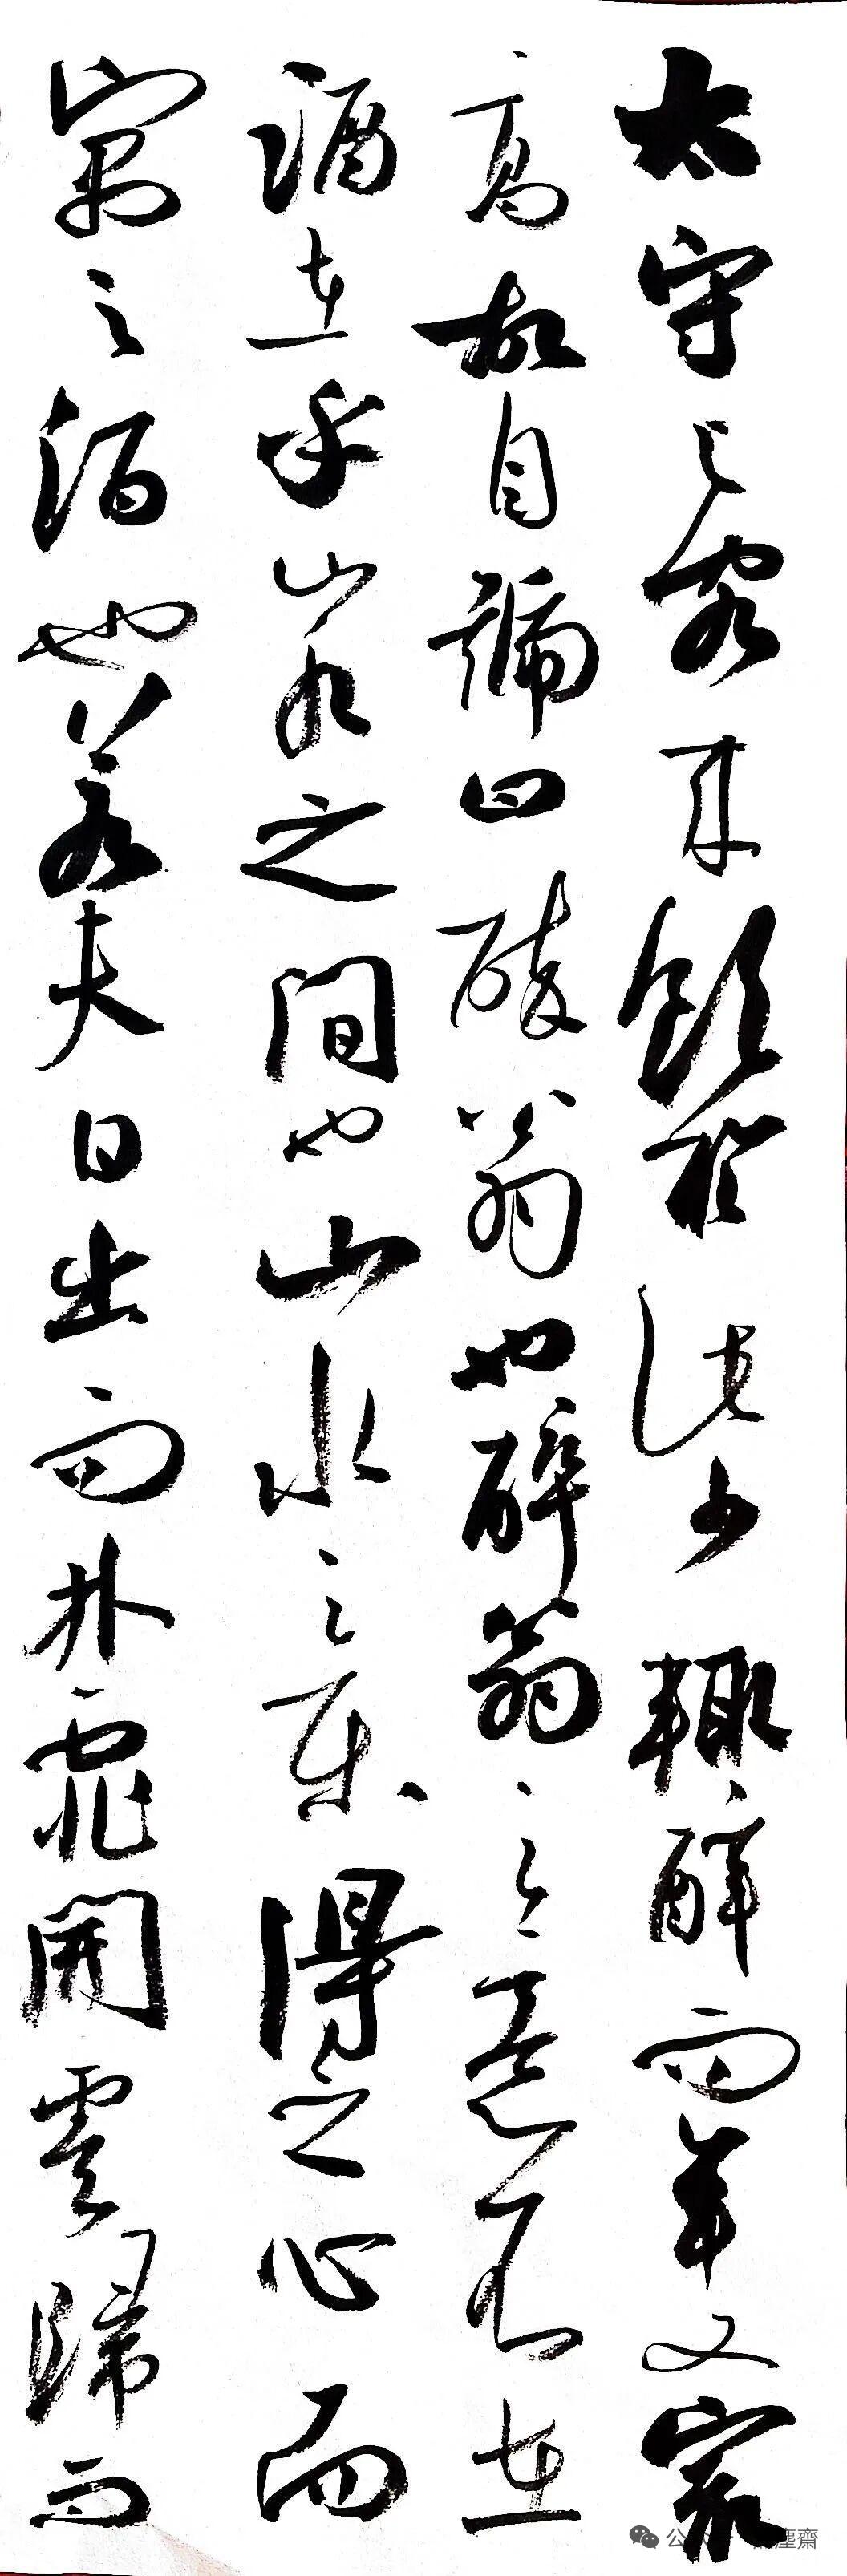 太守与客来飲於此少輒醉而年又最
高故自號曰醉翁也醉翁之意不在
酒在乎山水之間也山水之樂得之心而
寓之酒也若夫日出而林霏開雲歸而
塵齋